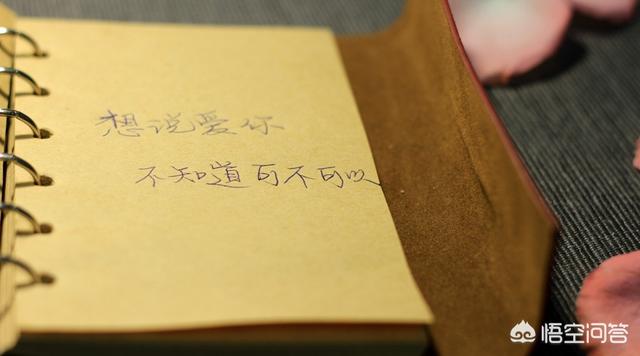 想说爱你
不知道可不可以
悟空问答